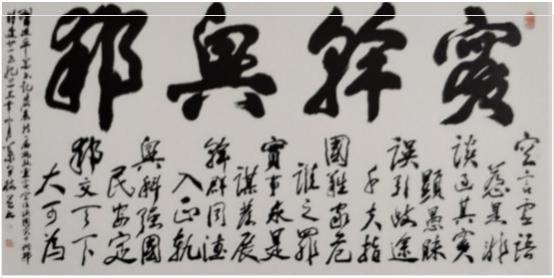 實幹興邦
空言虛語
惹是非
談過其實
顯愚昧
誤引歧途
千夫指
國難家危
誰之罪
實事求是
謀發展
幹群同德
入正軌
興科強國
民安定
邦交天下
大可為